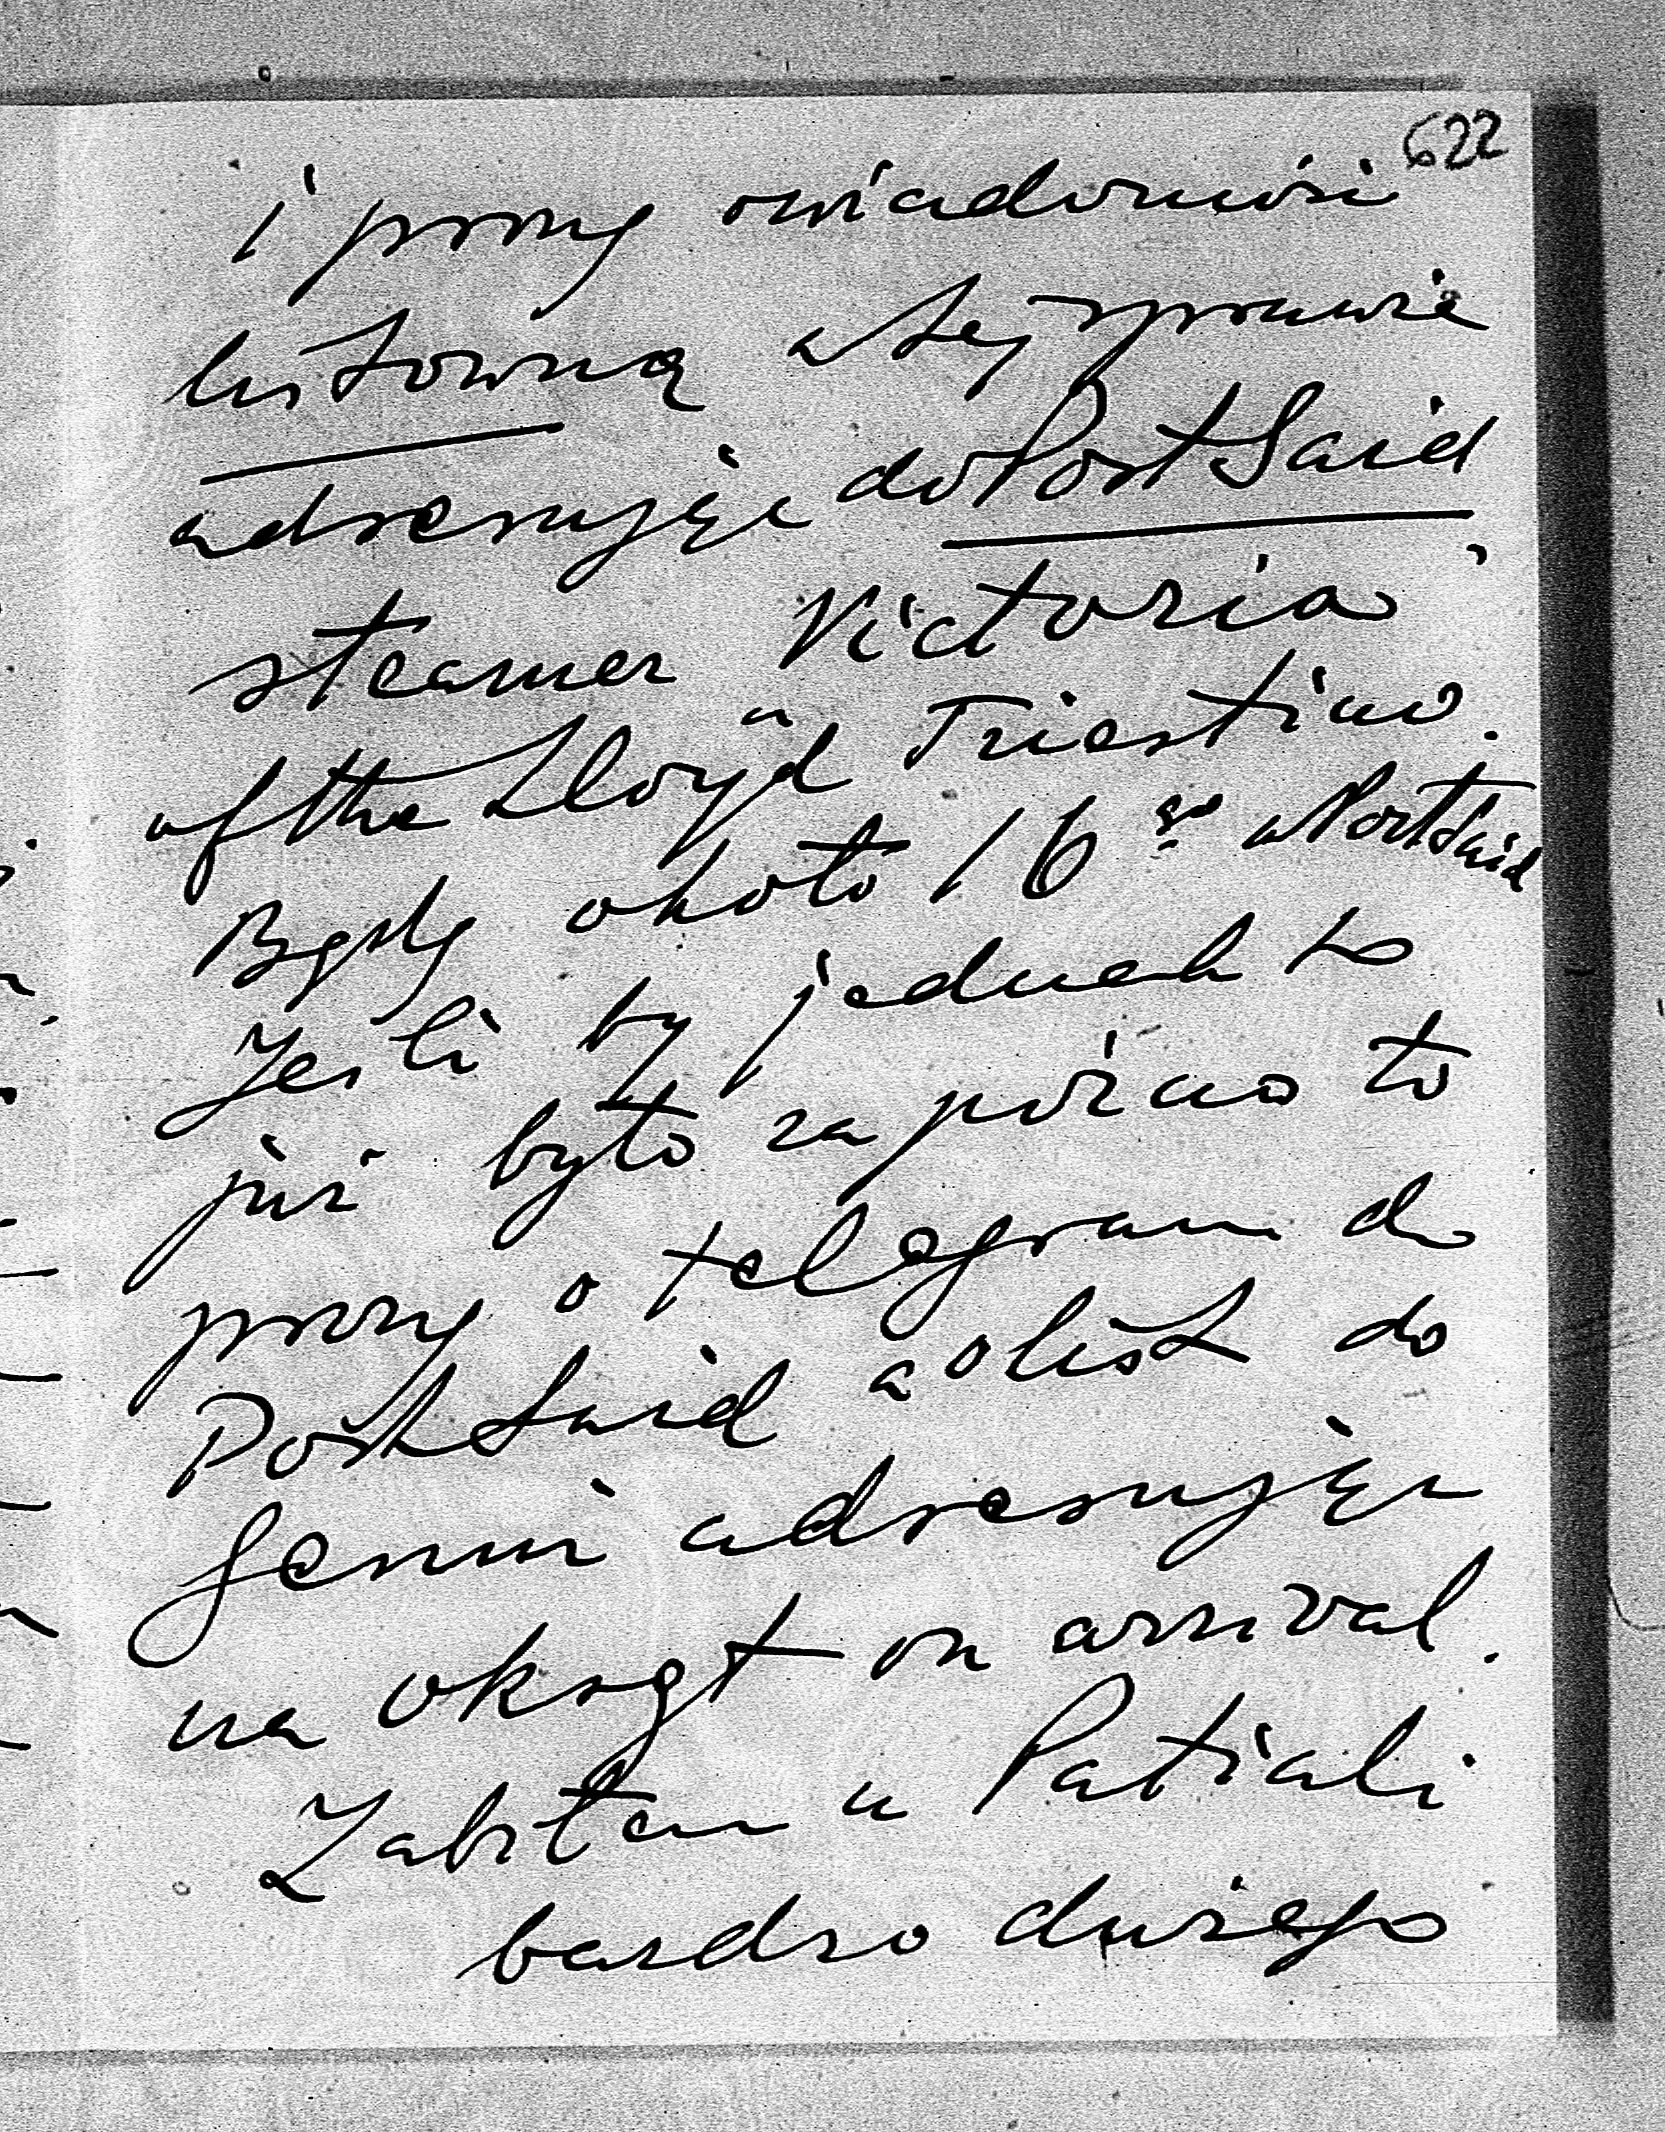 622
i proszę o wiadomość
listowną w tej sprawie
adresując do Port Said
steamer "Victoria"
of the Lloyd Triestino.
Będę około 16go w Port Said
Jeśli by jednak to
już było za późno to
proszę o telegram do
Port Said a o list do
Genui adresując
na okręt on arrival.
Zabrałem u Patiali
bardzo dużego